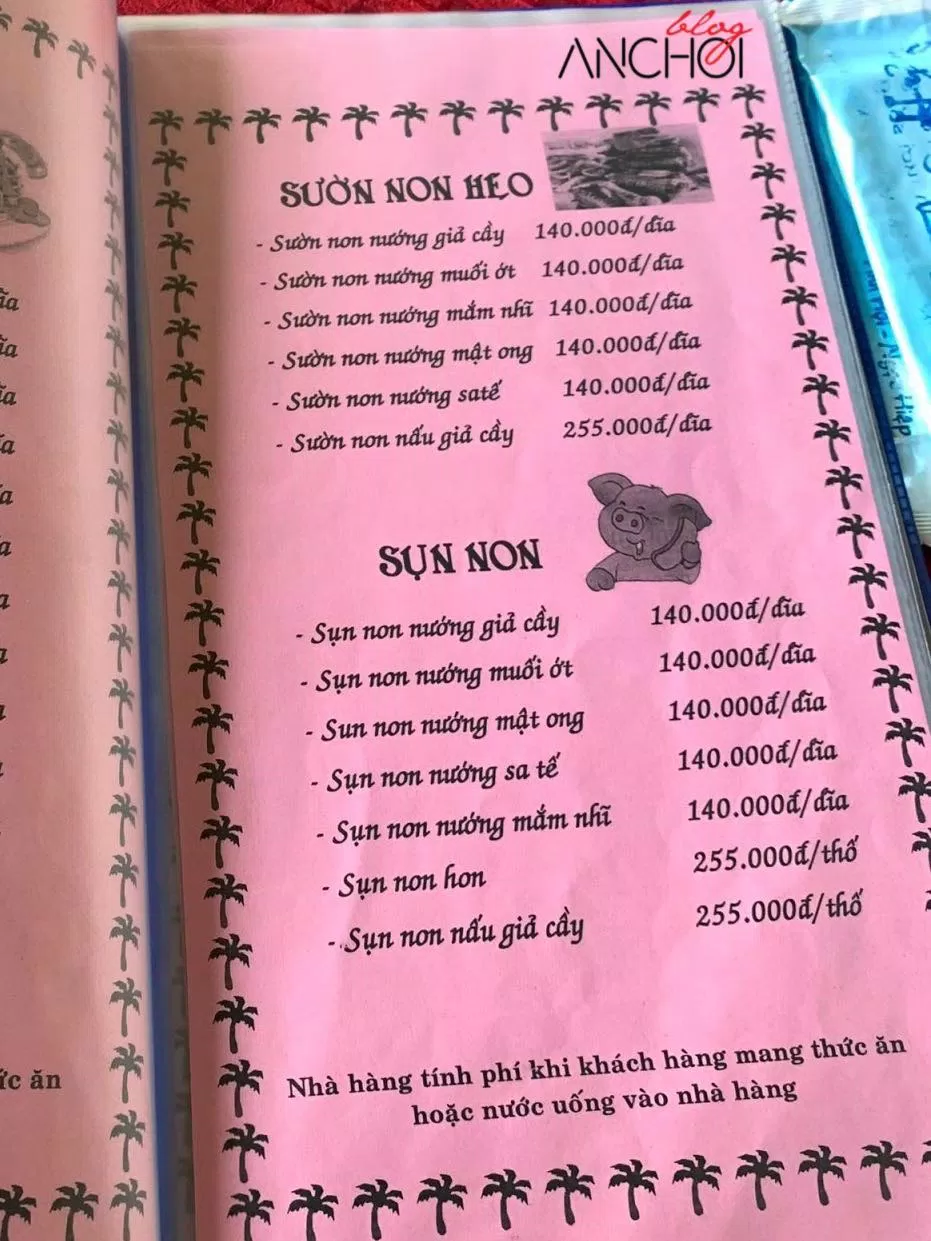 blog
ANCHOI
SƯỜN NON HEO
- Sườn non nướng giả cầy 140.000đ/đĩa
- Sườn non nướng muối ớt 140.000đ/đĩa
- Sườn non nướng mắm nhĩ 140.000đ/đĩa
- Sườn non nướng mật ong 140.000đ/đĩa
- Sườn non nướng satế 140.000đ/đĩa
- Sườn non nấu giả cầy 255.000đ/đĩa
SỤN NON
- Sụn non nướng giả cầy 140.000đ/đĩa
- Sụn non nướng muối ớt 140.000đ/đĩa
- Sun non nướng mật ong 140.000đ/đĩa
- Sụn non nướng sa tế 140.000đ/đĩa
- Sụn non nướng mắm nhĩ 140.000đ/đĩa
- Sụn non hon 255.000đ/thố
- Sụn non nấu giả cầy 255.000đ/thố
Nhà hàng tính phí khi khách hàng mang thức ăn
hoặc nước uống vào nhà hàng
ức ăn